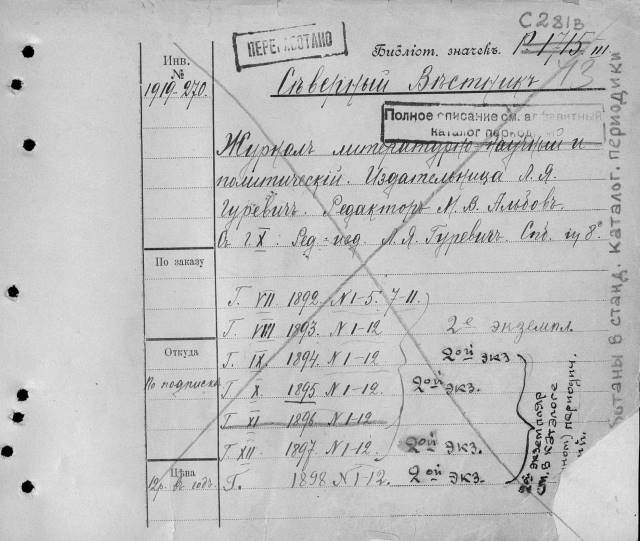 С 281в
ПЕРЕРАБОТАНО
Библіот. значекъ. Р 1715/III
13
Инв.
№
1919-270.
Сѣверный Вѣстникъ
Полное описание см. алфавитный
каталог период
Журналъ литературно-научный и
политическій. Издательница Л. Я.
Гуревичъ. Редакторъ М. В. Альбовъ.
Съ г. X: Ред-изд. Л. Я. Гуревичъ. Спб. in 8°.
По заказу
Г. VII 1892. N 1-5. 7-11.
Г. VIII 1893. N 1-12
2е экземпл.
Откуда
Г. IX. 1894. N 1-12
2ой экз
По подписке
Г X. 1895 N 1-12.
2ой экз.
Г XI 1896 N 1-12
Г. XII 1897. N 1-12.
2ой экз.
Цѣна
12р. въ годъ.
Г. 1898 N 1-12.
2ой экз.
2ой экземпляр
см. в каталоге
периодич.
ботаны в станд. каталог. периодики